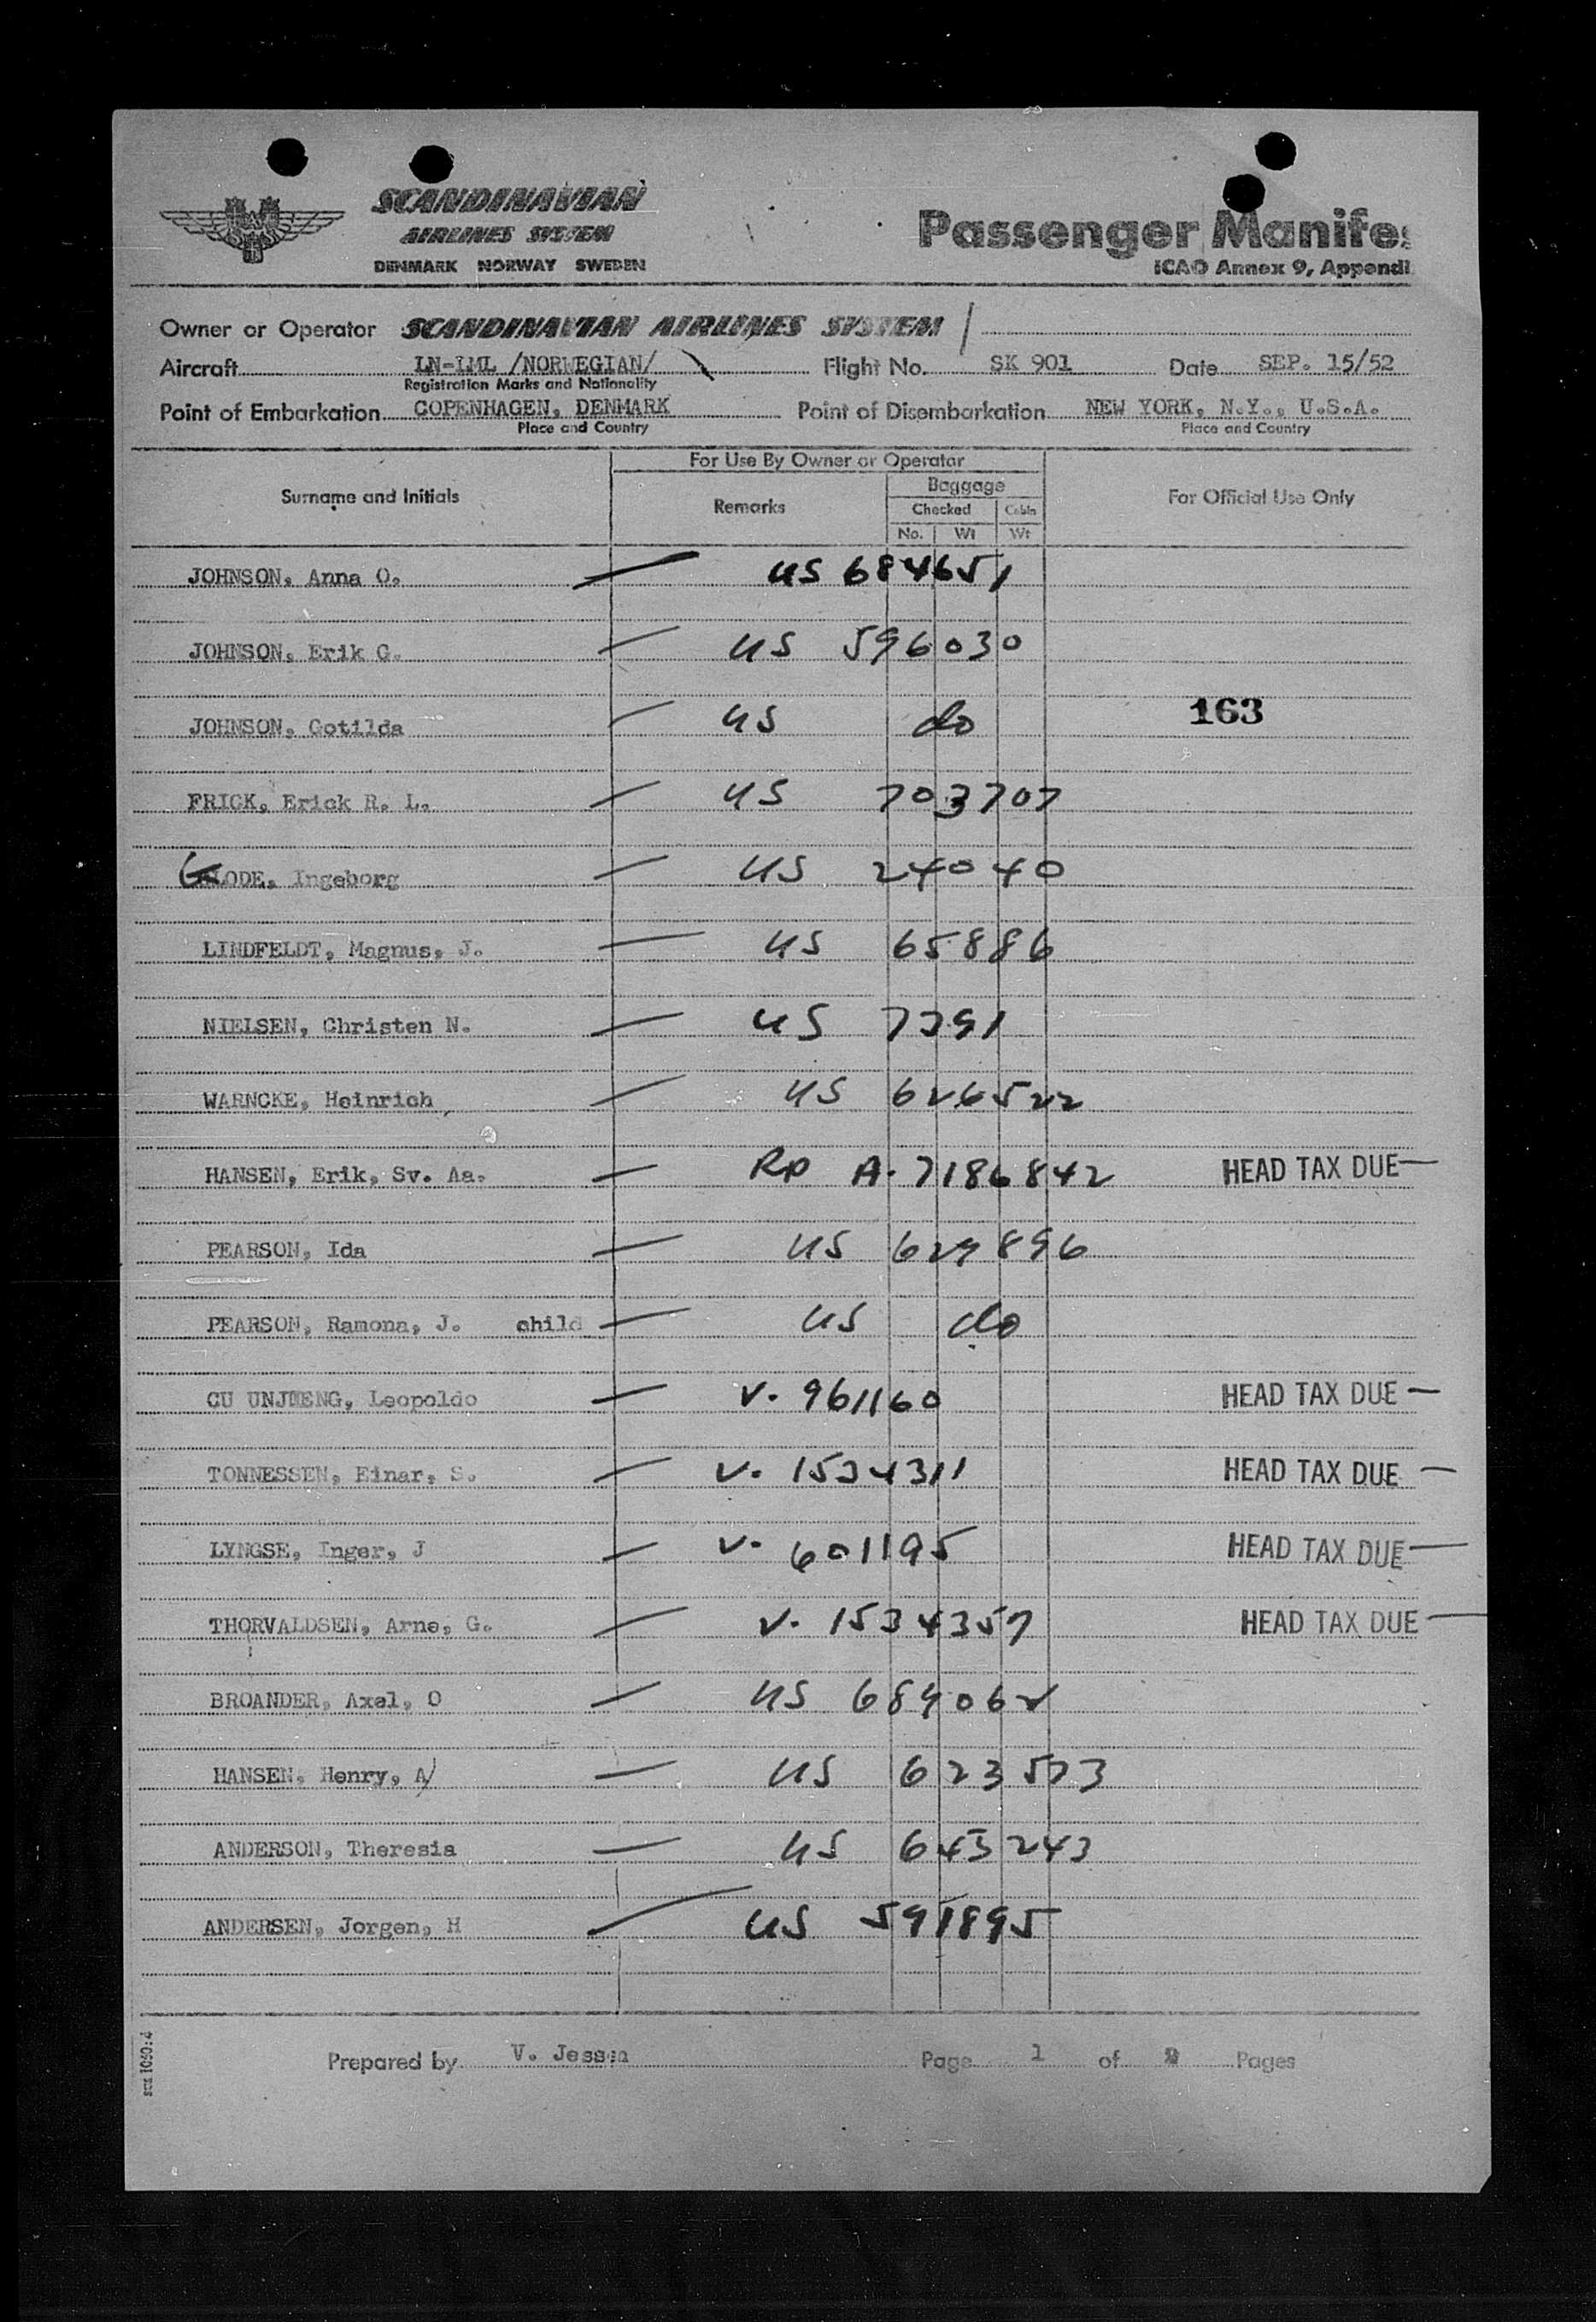 SCANDINAVIAN
AIRLINES SYSTEM
DENMARK NORWAY SWEDEN
Passenger Manifes
ICAO Annex 9, Appendi
Owner or Operator SCANDINAVIAN AIRLINES SYSTEM
Aircraft LN-LML /NORWEGIAN/ Flight No. SK 901 Date SEP. 15/52
Registration Marks and Nationality
Point of Embarkation COPENHAGEN, DENMARK Point of Disembarkation NEW YORK, N.Y., U.S.A.
Place and Country Place and Country
For Use By Owner or Operator
Surname and Initials Remarks Baggage For Official Use Only
Checked Cabin
No. Wt Wt
JOHNSON, Anna O. — US 684651
JOHNSON, Erik G. — US 596030
JOHNSON, Gotilda — US do 163
FRICK, Erick R. L. — US 703707
GLODE, Ingeborg — US 24040
LINDFELDT, Magnus, J. — US 65886
NIELSEN, Christen N. — US 7391
WARNCKE, Heinrich — US 626522
HANSEN, Erik, Sv. Aa. — RP A. 7186842 HEAD TAX DUE —
PEARSON, Ida — US 629896
PEARSON, Ramona, J. child — US do
CU UNJIENG, Leopoldo — V. 961160 HEAD TAX DUE —
TONNESSEN, Einar, S. — V. 1534311 HEAD TAX DUE —
LYNGSE, Inger, J — V. 601195 HEAD TAX DUE —
THORVALDSEN, Arne, G. — V. 1534357 HEAD TAX DUE —
BROANDER, Axel, O — US 684062
HANSEN, Henry, A/ — US 623573
ANDERSON, Theresia — US 643243
ANDERSEN, Jorgen, H — US 591895
Prepared by V. Jessen Page 1 of Pages